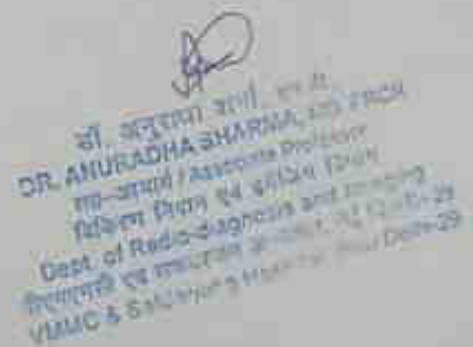 डॉ. अनुराधा शर्मा, एम.डी.
DR. ANURADHA SHARMA, MD
सह-आचार्य / Associate Professor
विकिरण निदान एवं इमेजिंग विभाग
Dept. of Radio-diagnosis and Imaging
एवं सफदरजंग
VMMC & Safdarjung Hospital, New Delhi-29